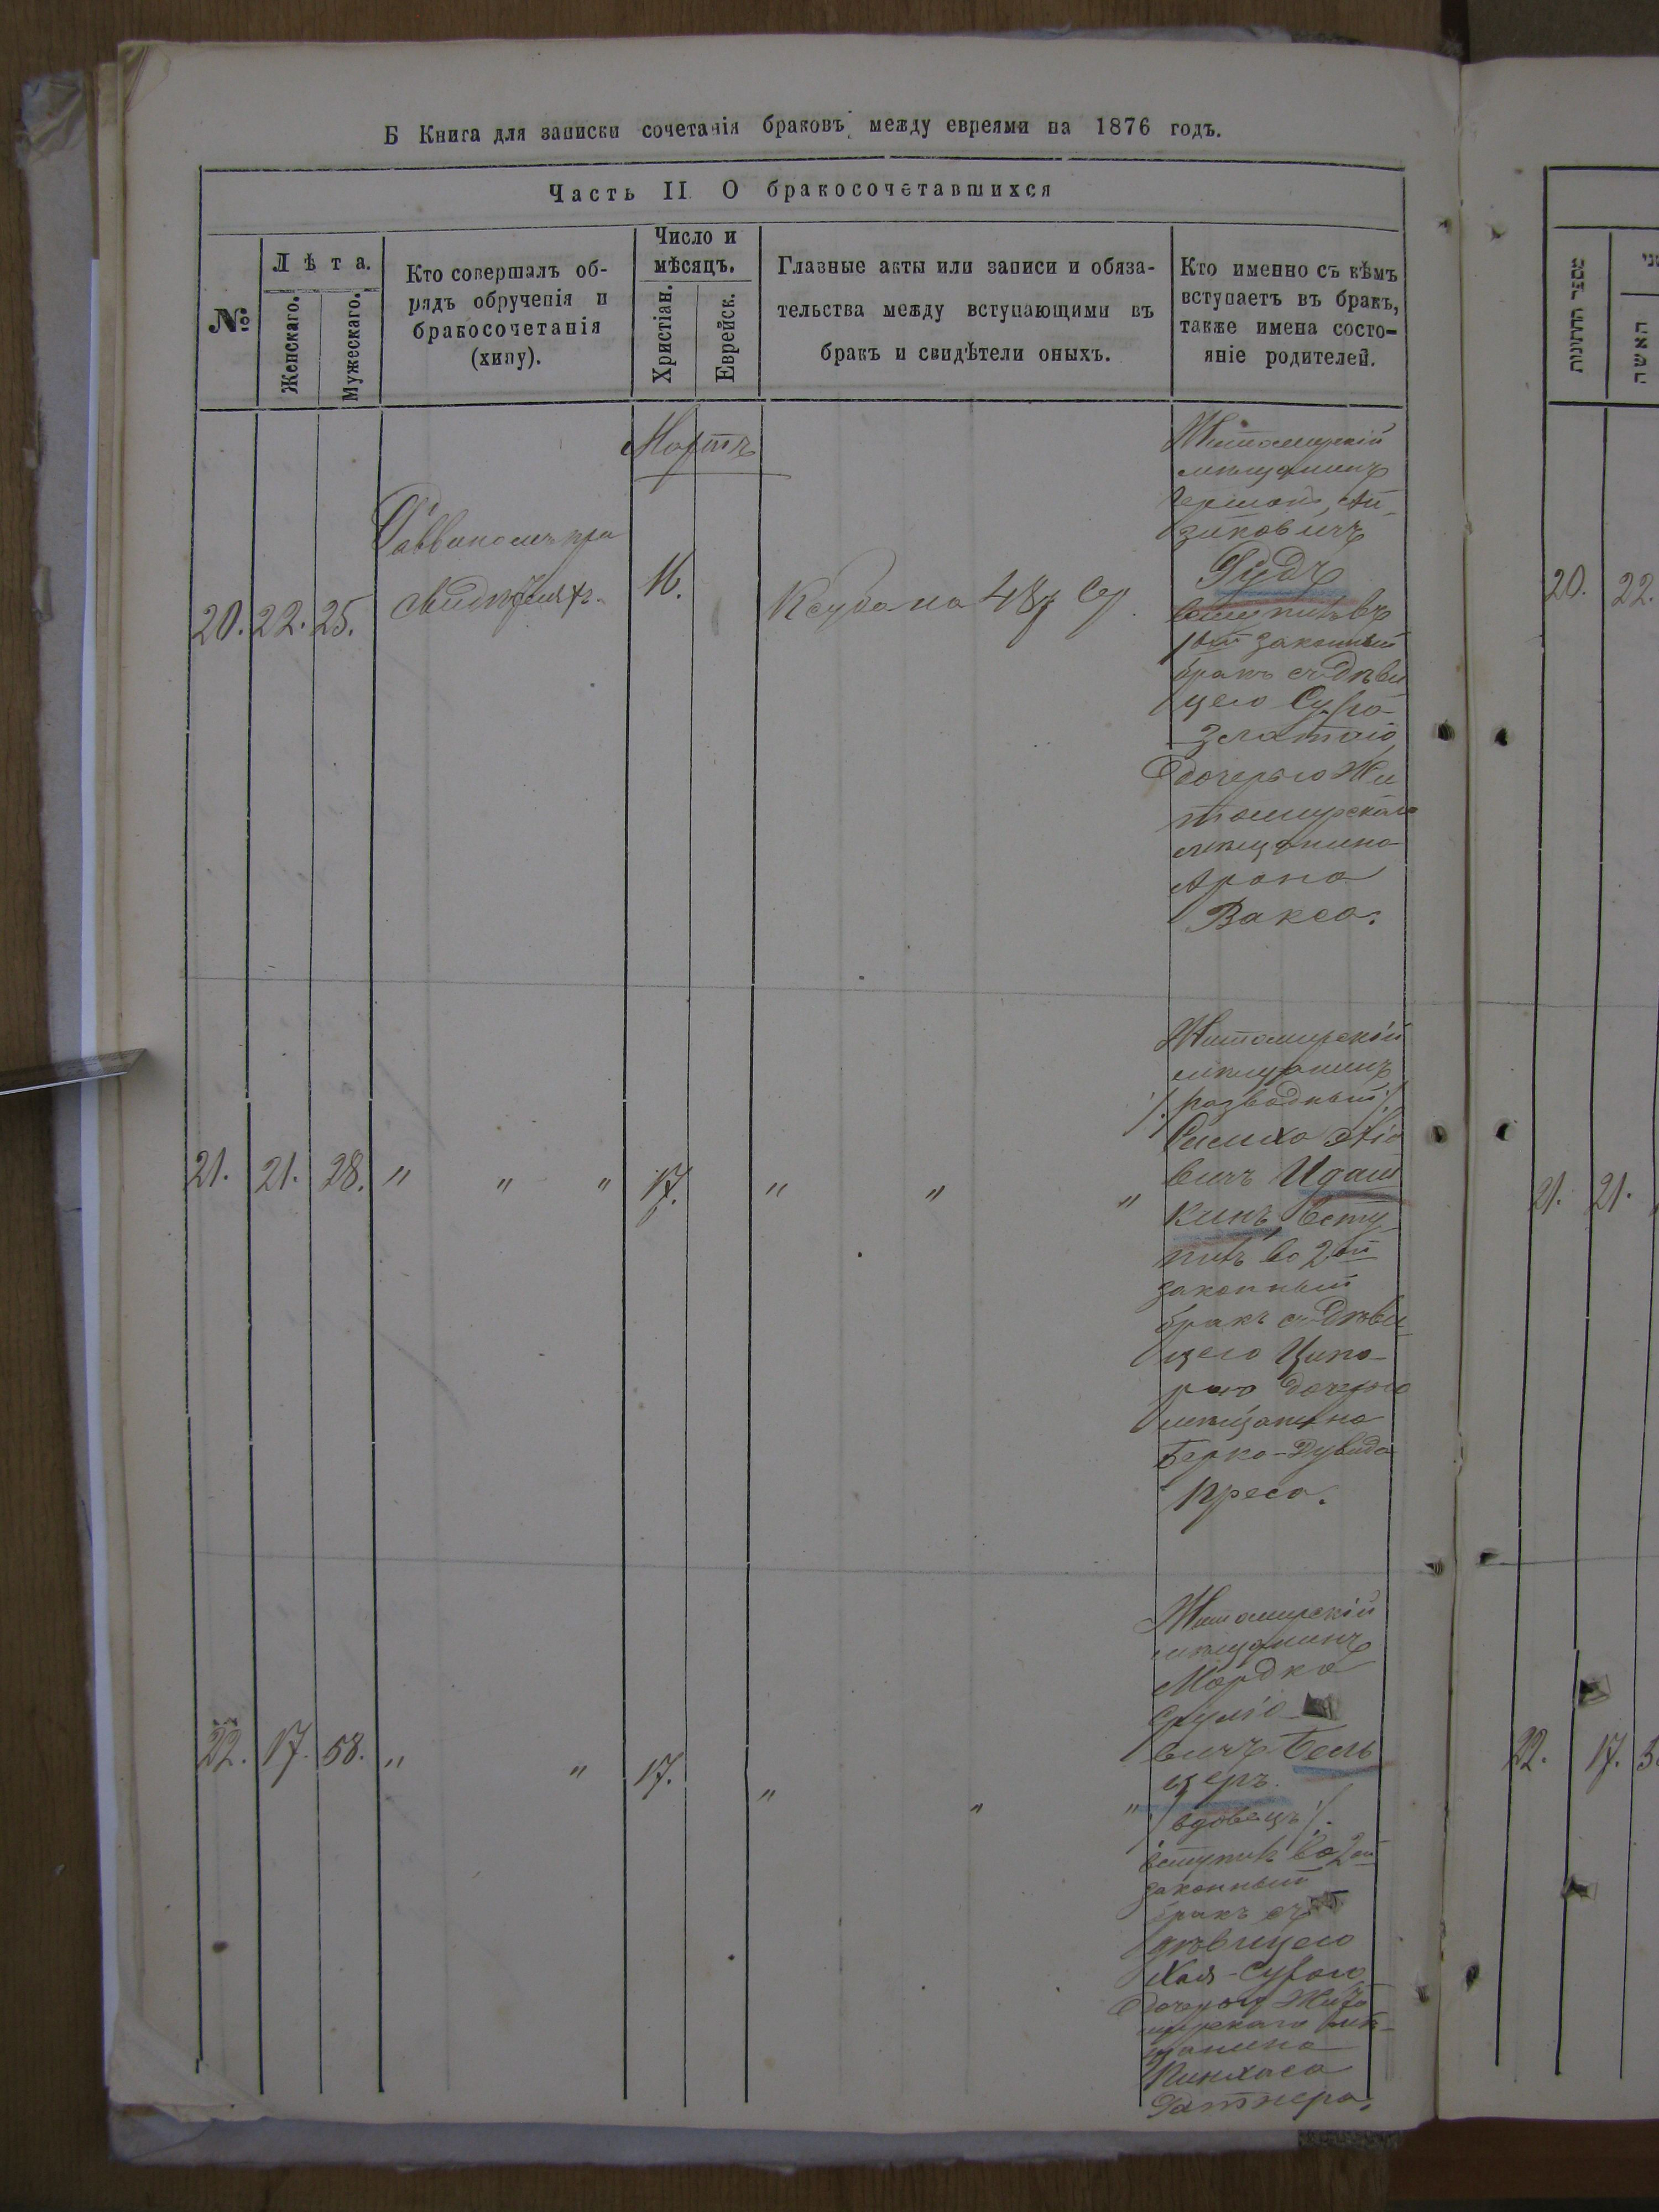 Б Книга для записки сочетанія браковъ между евреями на 1876 годъ.
Часть II О бракосочетавшихся
№
Лѣта.
Женскаго.
Мужескаго.
Кто совершалъ об-
рядъ обрученія и
бракосочетанія
(хупу).
Число и
мѣсяцъ.
Христіан.
Еврейск.
Главные акты или записи и обяза-
тельства между вступающими въ
бракъ и свидѣтели оныхъ.
Кто именно съ кѣмъ
вступаетъ въ бракъ,
также имена состо-
яніе родителей.
Мартъ
20. 22. 25.
Раввиномъ при
свидѣтеляхъ.
16.
Ксуба на 48 р Сер.
Житомирскій
мѣщанинъ
Гершонъ Ай-
зиковичъ
Гудъ
вступилъ въ
1вый законный
бракъ съ дѣви
цею Сура
Златою
дочерью Жи
томирскаго
мѣщанина
Арона
Вакса.
21. 21. 28. " " " 17. " " "
Житомирскій
мѣщанинъ
/: разводный :/
Симха
вичъ Идаш
кинъ, всту-
пилъ во 2ой
законный
бракъ съ дѣви-
цею Ципо-
рою дочерью
мѣщанина
Берко-Дувида
Креса.
22. 17. 58. " " 17. " " "
Житомирскій
мѣщанинъ
Мордко
Сруліо-
вичъ Бель
церъ.
/: вдовецъ :/.
вступилъ во 2ой
законный
бракъ съ
дѣвицею
Хая-Сурою
дочерью Жито
мирскаго мѣ-
щанина
Пинхаса
Ратнера.
מספר החתונות
האשה
20. 22.
21. 21.
22. 17.